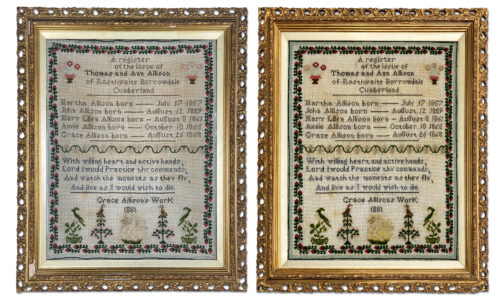 A register
of the issue of
Thomas and Ann Allison
of Rosthwaite Borrowdale
Cumberland
Martha Allison born — July 17 1857
John Allison born — August 12 1859
Mary Ellen Allison born — August 8 1861
Annie Allison born — October 10 1865
Grace Allison born — August 26 1868
With willing heart and active hands,
Lord I would Practice thy commands,
And watch the moments as they fly,
And live as I would wish to die.
Grace Allison's Work
1881
A register
of the issue of
Thomas and Ann Allison
of Rosthwaite Borrowdale
Cumberland
Martha Allison born — July 17 1857
John Allison born — August 12 1859
Mary Ellen Allison born — August 8 1861
Annie Allison born — October 10 1865
Grace Allison born — August 26 1868
With willing heart and active hands,
Lord I would Practice thy commands,
And watch the moments as they fly,
And live as I would wish to die.
Grace Allison's Work
1881